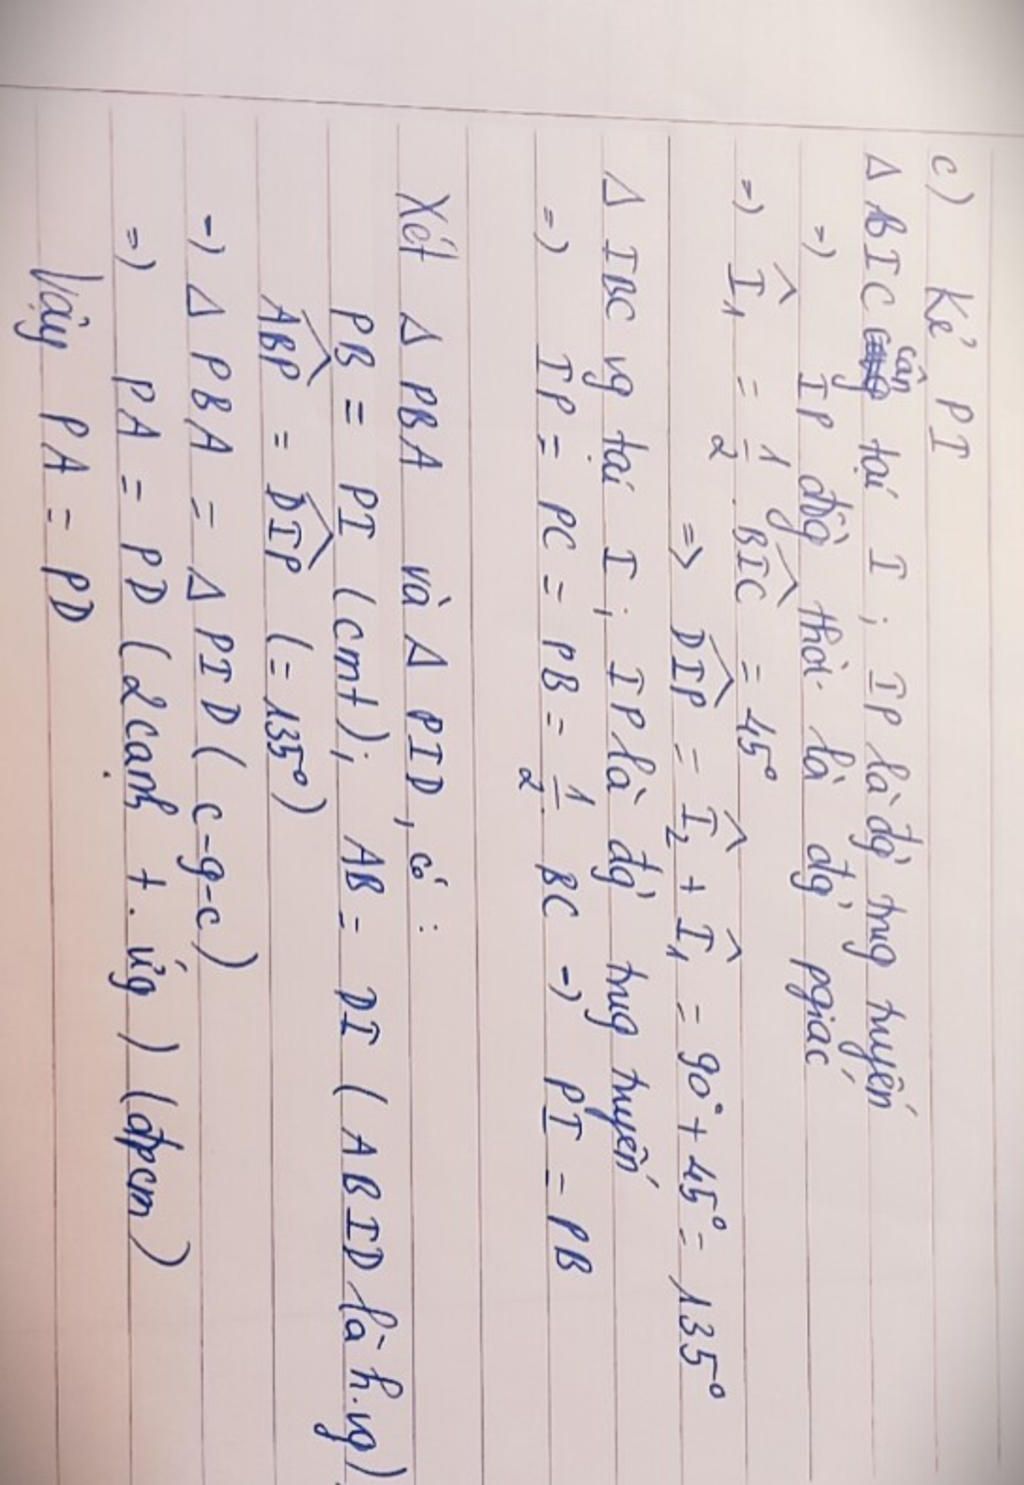 c) Kẻ PI
Δ BIC cân tại I ; IP là đg̀ trug tuyến
=) IP đồg thời là đg̀ pgiác
=) Î₁ = 1/2 . BIC^ = 45°
=> DIP^ = Î₂ + Î₁ = 90° + 45° = 135°
Δ IBC vg tại I ; IP là đg̀ trug tuyến
=) IP = PC = PB = 1/2 BC -) PI = PB
Xét Δ PBA và Δ PID, có :
PB = PI (cmt) ; AB = DI ( ABID là h.vg)
ABP^ = DIP^ (= 135°)
-) Δ PBA = Δ PID ( c-g-c)
=) PA = PD ( 2 cạnh t. ứg ) (đpcm)
Vậy PA = PD